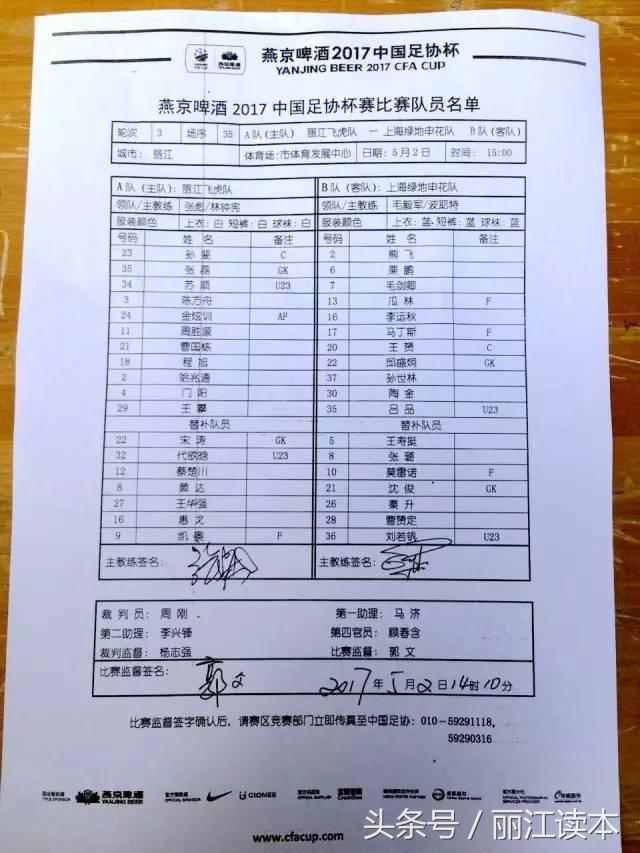 燕京啤酒2017中国足协杯
YANJING BEER 2017 CFA CUP
燕京啤酒 2017 中国足协杯赛比赛队员名单
轮次 3 场序 35 A队(主队) 丽江飞虎队 — 上海绿地申花队 B队(客队)
城市: 丽江 体育场:市体育发展中心 日期: 5月2日 时间: 15:00
A队(主队): 丽江飞虎队 B队(客队): 上海绿地申花队
领队/主教练 张彪/林钟宪 领队/主教练 毛毅军/波耶特
服装颜色 上衣: 白 短裤: 白 球袜: 白 服装颜色 上衣: 蓝 短裤: 蓝 球袜: 蓝
号码 姓名 备注 号码 姓名 备注
23 孙斐 C 2 熊飞
35 张磊 GK 6 栗鹏
34 苏顺 U23 7 毛剑卿
3 陈方舟 13 瓜林 F
24 金炫训 AF 16 李运秋
11 周胜源 17 马丁斯 F
21 曹国栋 20 王赟 C
18 程旭 22 邱盛炯 GK
2 哈兆通 37 孙世林
4 门阳 30 陶金
29 王攀 35 吕品 U23
替补队员 替补队员
22 宋涛 GK 5 王寿挺
32 代欧晗 U23 8 张璐
12 蔡楚川 10 莫雷诺 F
8 黄达 21 沈俊 GK
27 王华强 26 秦升
16 惠龙 28 曹赟定
9 凯奥 F 36 刘若钒 U23
主教练签名: 主教练签名:
裁判员: 周刚 第一助理: 马济
第二助理: 李兴锋 第四官员: 顾春含
裁判监督: 杨志强 比赛监督: 郭文
比赛监督签名: 郭文 2017年5月2日14时10分
比赛监督签字确认后, 请赛区竞赛部门立即传真至中国足协: 010-59291118,
59290316
燕京啤酒 YANJING BEER GIONEE
www.cfacup.com
头条号 / 丽江读本